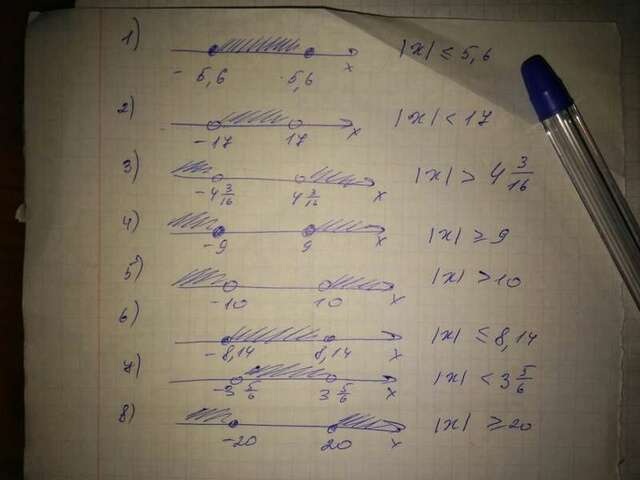 1) - 5,6 5,6 x |x| ≤ 5,6
2) -17 17 x |x| < 17
3) -4 3/16 4 3/16 x |x| > 4 3/16
4) -9 9 x |x| ≥ 9
5) -10 10 x |x| > 10
6) -8,14 8,14 x |x| ≤ 8,14
7) -3 5/6 3 5/6 x |x| < 3 5/6
8) -20 20 x |x| ≥ 20